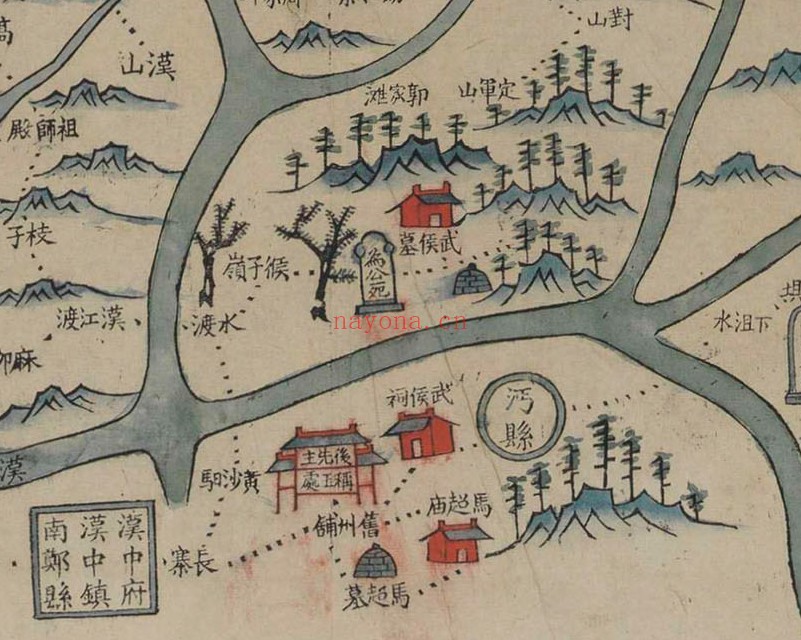 對山
漢山
定軍山
郭家灘
祖師殿
武侯墓
為公死
候子嶺
枝子
漢江渡
水渡
下沮水
武侯祠
沔縣
後先主
稱王處
黃沙馹
馬超庙
舊州舖
長寨
馬超墓
漢
漢中府
漢中鎮
南鄭縣
nayona.cn